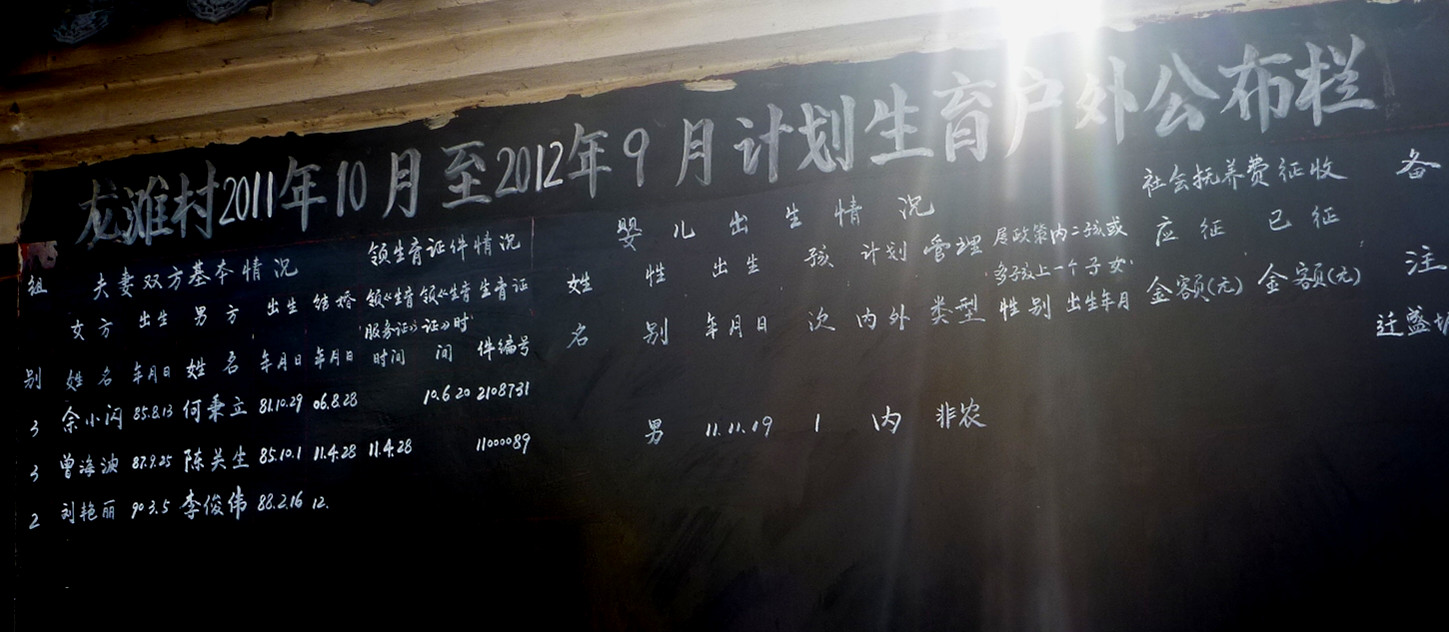 龙滩村2011年10月至2012年9月计划生育户外公布栏
组别
夫妻双方基本情况
女方姓名
出生年月日
男方姓名
出生年月日
结婚年月日
领生育证件情况
领《生育服务证》时间
领《生育证》时间
生育证件编号
婴儿出生情况
姓名
性别
出生年月日
孩次
计划内外
管理类型
属政策内二孩或多孩上一个子女
性别
出生年月
社会抚养费征收
应征金额(元)
已征金额(元)
备注
3 余小闪 85.8.13 何秉立 81.10.29 06.8.28 10.6.20 2108731 迁盛
3 曾海波 87.9.25 陈关生 85.10.1 11.4.28 11.4.28 1100089 男 11.11.19 1 内 非农
2 刘艳丽 90.3.5 李俊伟 88.2.16 12.